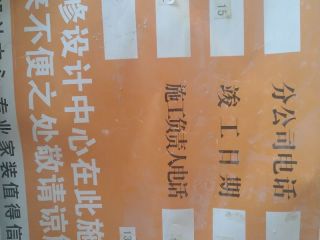 分公司电话
竣工日期
15
施工负责人电话
13
修设计中心在此施
来不便之处敬请谅
计中心 专业家装值得信